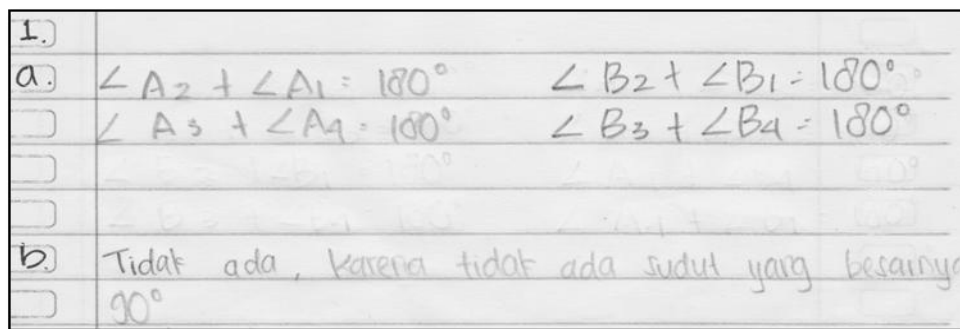 1.)
a.) ∠A2 + ∠A1 = 180° ∠B2 + ∠B1 = 180°
∠A3 + ∠A4 = 180° ∠B3 + ∠B4 = 180°
b.) Tidak ada, karena tidak ada sudut yang besarnya
90°